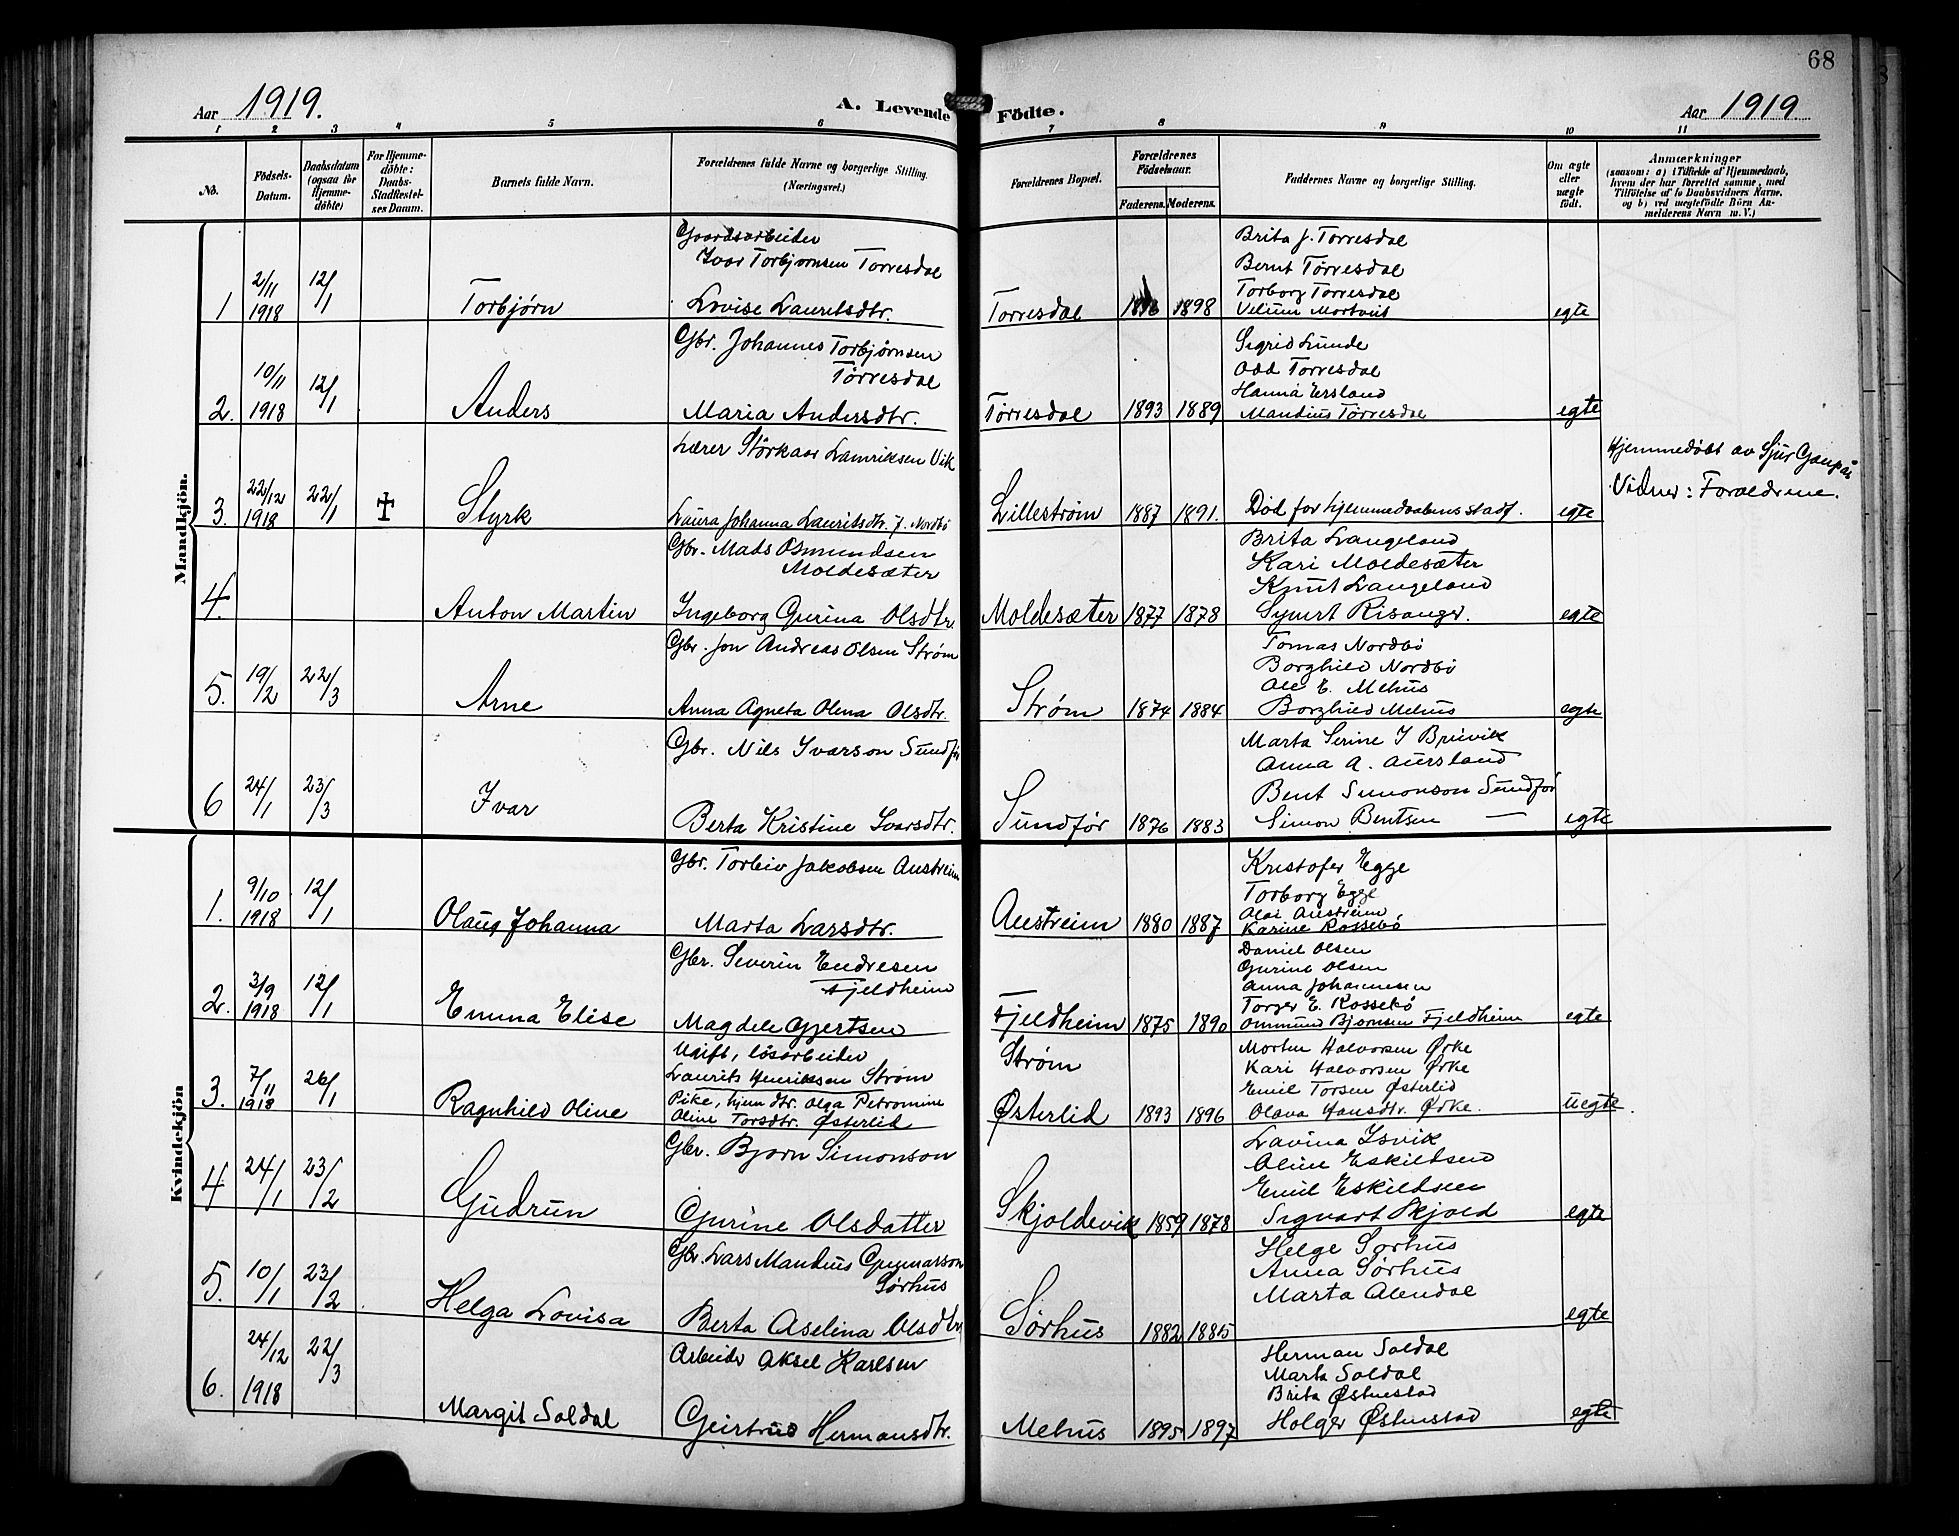 68
Aar 1919.
A. Levende Födte.
Aar 1919
1 2 3 4 5 6 7 8 9 10 11
No.
Födsels-Datum.
Daabsdatum (ogsaa for Hjemme-döbte)
For Hjemme-döbte: Daabs-Stadfæstel-ses Datum.
Barnets fulde Navn.
Forældrenes fulde Navne og borgerlige Stilling. (Næringsvei.)
Forældrenes Bopæl.
Forældrenes Födselsaar.
Faderens. Moderens.
Faddernes Navne og borgerlige Stilling.
Om ægte eller uægte födt.
Anmærkninger
(saasom: a) i Tilfælde af Hjemmedaab, hvem der har forrettet samme, med Tilföielse af to Daabsvidners Navne, og b) ved uegtefödte Börn An-melderens Navn m. V.)
Mandkjön.
1 2/11 1918 12/1 Torbjørn
Gaardsarbeider
Ivar Torbjørnsen Torresdal
Lovise Lauritsdtr.
Torresdal 1898
Brita J. Torresdal
Bernt Tørresdal
Torborg Torresdal
egte
2. 10/11 1918 12/1 Anders
Gbr. Johannes Torbjørnsen
Tørresdal
Maria Andersdtr.
Tørresdal 1893 1889
Sigrid Lunde
Odd Torresdal
Hanna Ersland
Mandius Tørresdal
egte
3. 22/12 1918 22/1 Styrk
Lærer Störkaar Lamriksen Vik
Laura Johanna Lauritsdtr. f. Nordbö
Lillestrøm 1887 1891.
Död før hjemmedaabens stadf.
egte
Hjemmedöbt av Sjur Gaupås
Vidner: Foraldrene.
4. Anton Martin
Gbr. Mads Osmundsen
Moldesæter
Ingeborg Gurina Olsdtr.
Moldesæter 1877 1878
Brita Langeland
Kari Moldesæter
Knut Langeland
Sjurt Risanger.
egte
5. 19/2 22/3 Arne
Gbr. Jon Andreas Olsen Strøm
Anna Agneta Olena Olsdtr.
Strøm 1874 1884
Tomas Nordbö
Borghild Nordbö
Ole E. Mehus
Borghild Mehus
egte
6 24/1 23/3 Ivar
Gbr. Nils Ivarson Sundför
Berta Kristine Ivarsdtr.
Sundför 1876 1883
Marta Serine I Breivik
Anna A. Aursland
Bent Simonson Sundför
Simon Bentsen —
egte
Kvindekjön
1. 9/10 1918 12/1 Olaug Johanna
Gbr. Torleiv Jakobsen Austreim
Marta Larsdtr.
Austreim 1880 1887
Kristofer Egge
Torborg Egge
Olai Austreim
Karine Rossebö
2. 3/9 1918 12/1 Emma Elise
Gbr. Severin Endresen
Fjeldheim
Magdele Gjertsen
Fjeldheim 1875 1890
Daniel Olsen
Gurine Olsen
Anna Johannesen
Torger E. Rossebö
Ommund Bjornsen Fjeldheim
egte
3. 7/11 1918 26/1 Ragnhild Oline
Ugift, lösarbeider
Laurits Henriksen Strøm
Pike, hjem dtr. Olga Petromine
Oline Torsdtr. Østerlid
Strøm
Østerlid 1893 1896
Morten Halvorsen Ørke
Kari Halvorsen Ørke
Emil Torsen Østerlid
Olava Hansdtr. Ørke.
uegte.
4 24/1 23/2 Gudrun
Gbr. Bjorn Simonson
Gurine Olsdatter
Skjoldevik 1859 1878
Lavina Isvik
Oline Eskildsen
Emil Eskildsen
Sigvart Skjold
egte
5. 10/1 23/2 Helga Lovisa
Gbr. Lars Mandius Gunnarson
Sørhus
Berta Aselina Olsdtr
Sørhus 1882 1885
Helge Sørhus
Anna Sørhus
Marta Alendal
egte
6. 24/12 1918 22/3 Margit Soldal
Arbeider Aksel Karlsen
Geirtrud Hermansdtr.
Mehus 1895 1897
Herman Soldal
Marta Soldal
Brita Østenstad
Holger Østenstad
egte